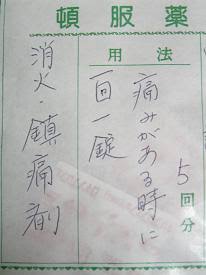 頓服薬
用法
5回分
痛みがある時に
一回一錠
消火・鎮痛剤